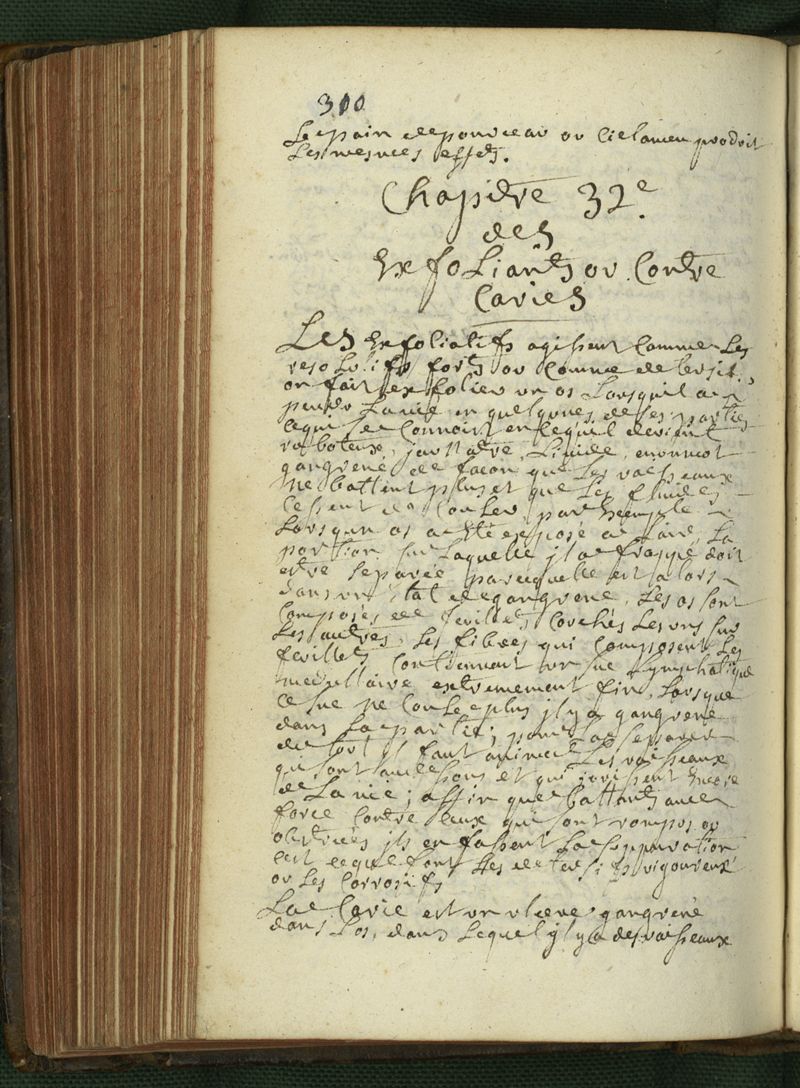 310
Le pain de pourceau ou Ciclamen produit
Les mesmes effets.
Chapitre 32e
des
Exfoliants ou Contre
Caries
Les Exfoliatifs agissent Comme Les
resolutifs forts ou Comme detersifs.
on fait exfolier un os Lorsqu'il a
perdu La vie en quelques de ses parties
ce qui se Connoist en ce quil devient
raboteux, jaunatre, Liuide, enunmot
gangrené de facon que Les vaisseaux
ne battent plus et que Les fluides
Cessent de Couler par Exemple
Lorsqun os a esté exposé a Lair, La
portion sur Laquelle jl a frappé doit
estre separée parcequelle est alors
dans un Etat de gangrene, Les os sont
Composés de feuillets Couchés Les uns sur
Les autres, Les fibres qui Composent Les
feuillets Contiennent un suc Lymphatique
medullaire extremement fin, Lorsque
Ce suc ne Coule plus jl y a gangrene
dans La partie; pour La separer
du tout jl faut animer Les vaisseaux
qui sont au dessous et qui jouissent Encore
de La vie; affin que battants avec
force Contre Ceux qui sont rompus ou
obstrués jls en fassent La suppuration
Cest ce que font Les detersifs vigoureux
ou Les Corrosifs
La Carie est un ulcere gangrené
dans Los, dans Lequel jl y a des vaisseaux